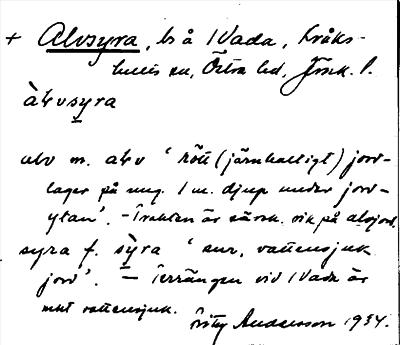 + Alvsyra, bs å Wada, Kråks-
hults sn, Östra hd, Jönk. l.
àḷvsyra
alv m. aḷv ‘rött (järnhaltigt) jord-
lager på ung. 1 m. djup under jord-
ytan’. – Trakten är särsk. rik på alvjord.
syra f. sỳra ‘sur, vattensjuk
jord’. – Terrängen vid Wada är
mkt vattensjuk.
Andersson 1934.